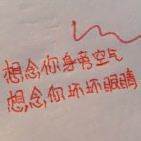 想念你身旁空气
想念你坏坏眼睛